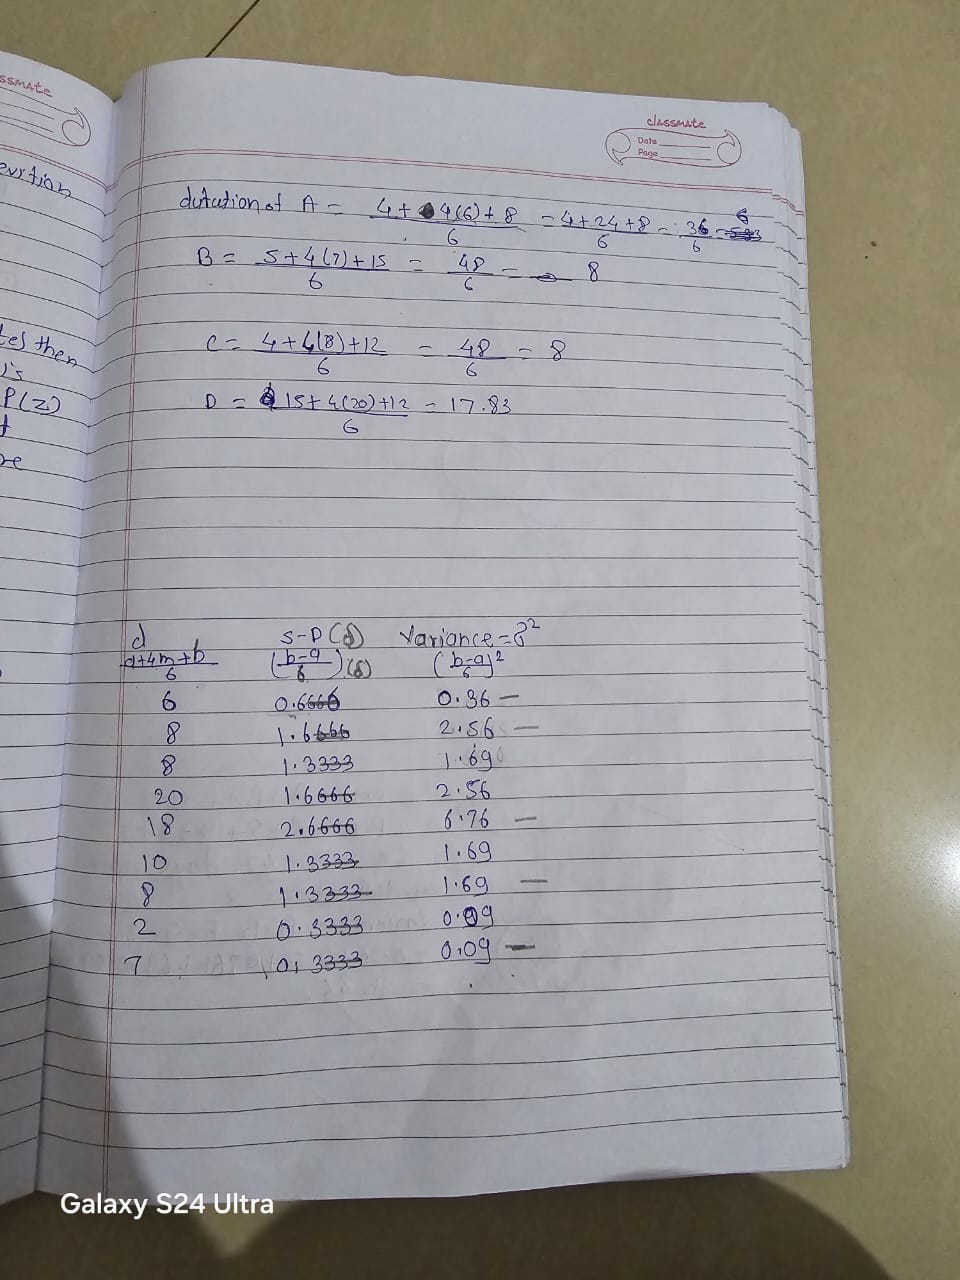 ssmate
classmate
Date
Page
tes then
P(Z)
A = 4+4(6)+8 / 6 = 4+24+8 / 6 = 36 / 6 = 6
B = 5+4(7)+15 / 6 = 48 / 6 = 8
C = 4+4(8)+12 / 6 = 48 / 6 = 8
D = 15+4(20)+12 / 6 = 17.83
d S-D Variance =
a+4m+b / 6 (b-a / 6) (b-a / 6)²
6 0.6666 0.36 —
8 1.6666 2.56 —
8 1.3333 1.69
20 1.6666 2.56
18 2.6666 6.76 —
10 1.3333 1.69
8 1.3333 1.69 —
2 0.3333 0.09
7 0.3333 0.09 —
Galaxy S24 Ultra